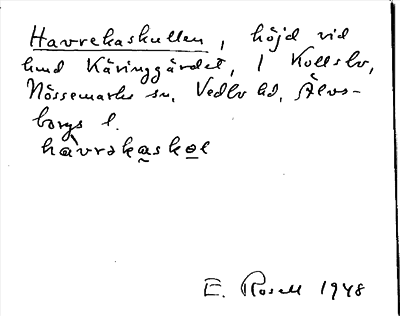 Havrekaskullen, höjd vid
hmd Käringgärdet, 1 Kollslv,
Nössemarks sn, Vedbo hd, Älvs-
borgs l.
hàvrəka̰sko̲l
E. Rosell 1948